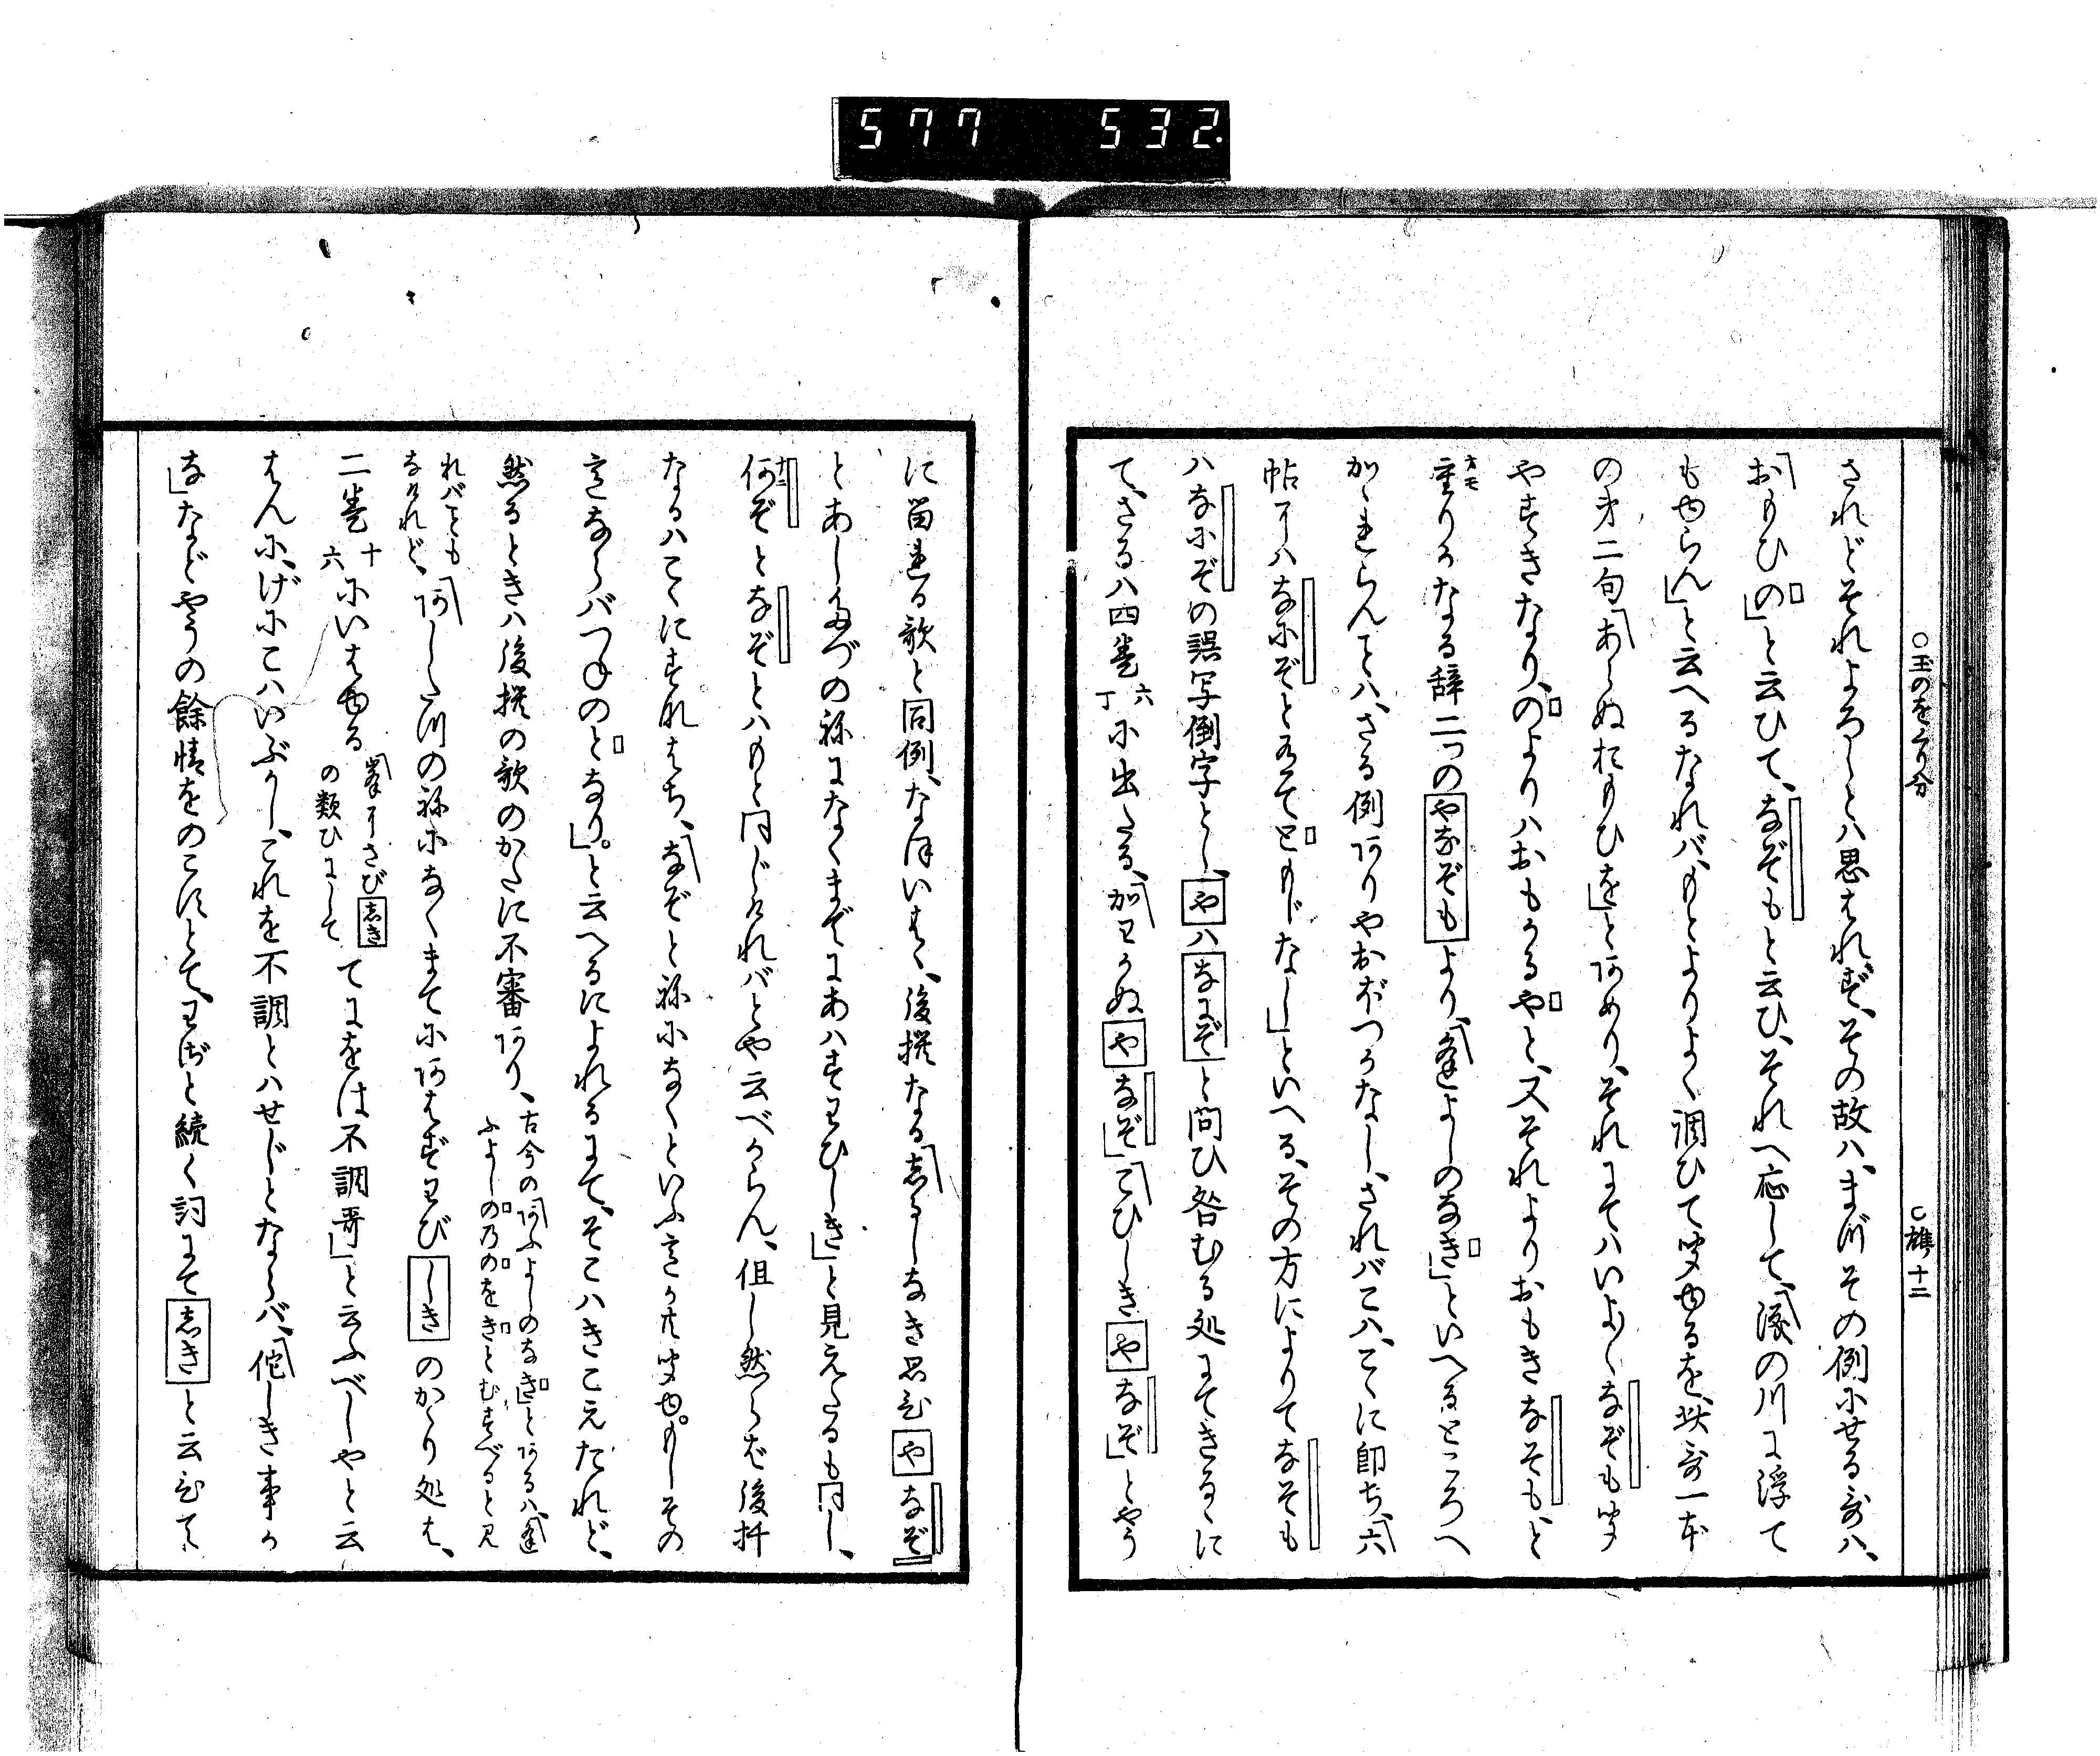 577 532.
○玉のをくり分 ○携 十二
されどそれよろしとハ思はれず、その故ハ、まづその例にせる哥ハ、
おもひの」と云ひて、なぞもと云ひ、それへ応して、「涙の川に浮て
もゆらん」と云へるなれバ、もとよりよく調ひて聞ゆるを、此哥一本
の第二句「あらぬおもひを」とあめり、それにてハいよ〱なぞも聞
やすきなり、のよりハおもかるやと、又それよりおもきなそも、と
重りかなる辞二つのやなぞもより、「逢よしのなき」といへるところへ
かゝるらんとハ、さる例ありやおぼつかなし、されバこハ、こゝに即ち、「六
帖にハなにぞとありてともじなし」といへる、その方によりてなそも
ハなにぞの誤写倒字とし、やハなにぞと問ひ咎むる処にてきるゝに
て、さるハ四巻 六丁 に出たる、「かわかぬやなぞ」「こひしきやなぞ」とやう
に留まる歌と同例、なほいはゞ、後撰なる「しるしなき思ひやなぞ
とあしたづの祢になくまでにあハずわびしき」と見えたるも同し、
何ぞとなぞとハもと同じけれバとや云べからん、但し然らば後撰
なるハこゝにすなはち、「なぞと祢になくといふ意か共聞ゆ。もしその
意ならバつねのとなり。」と云へるによれるにて、そこハきこえたれど、
然るときハ後撰の歌のかたに不審あり、 古今の「あふよしのなき」とあるハ、「逢
ふよしの乃のをきとむすべると見
れバともなけれど、「あしたづの祢になくまてにあはずわびしきのかゝり処は、
二巻 十六 にいはゆる 「峯にさびしきの類ひにして てにをは不調哥」と云ふべしやと云
はんに、げにこハいぶかし、これを不調とハせじとならバ、「侘しき事か
な」などやうの餘情をのこすとて、わざと続く詞にてしきと云ひて